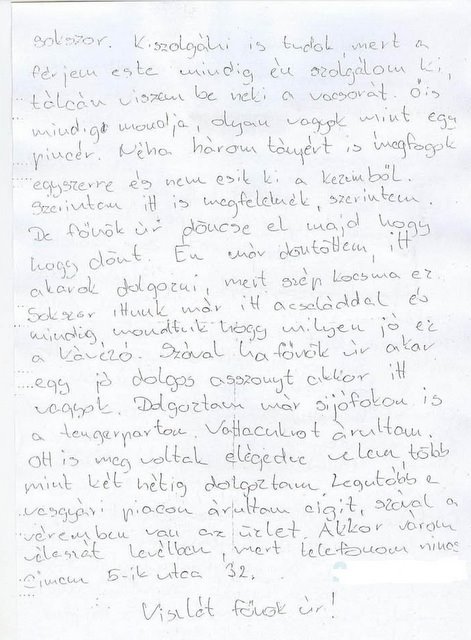 sokszor. Kiszolgálni is tudok mert a
férjem este mindig én szolgálom ki,
tálcán viszem be neki a vacsorát. Ő is
mindig mondja, olyan vagyok mint egy
pincér. Néha három tányért is megfogok
egyszerre és nem esik ki a kezemből.
Szerintem itt is megfelelnék, szerintem.
De főnök úr döncse el majd hogy
hogy dönt. Én már döntöttem, itt
akarok dolgozni, mert szép kocsma ez
Sokszor ittunk már itt a családdal és
mindig mondtuk hogy milyen jó ez
a kávézó. Szóval ha főnök úr akar
egy jó dolgos asszonyt akkor itt
vagyok. Dolgoztam már sijófokon is
a tengerparton. Vattacukrot árultam.
Ott is meg voltak elégedve velem több
mint két hétig dolgoztam Legutóbb a
vasgyári piacon árultam cigit, szóval a
véremben van az üzlet. Akkor várom
levélben, mert telefonom nincs
Címem 5-ik utca 32.
Viszlát főnök úr!